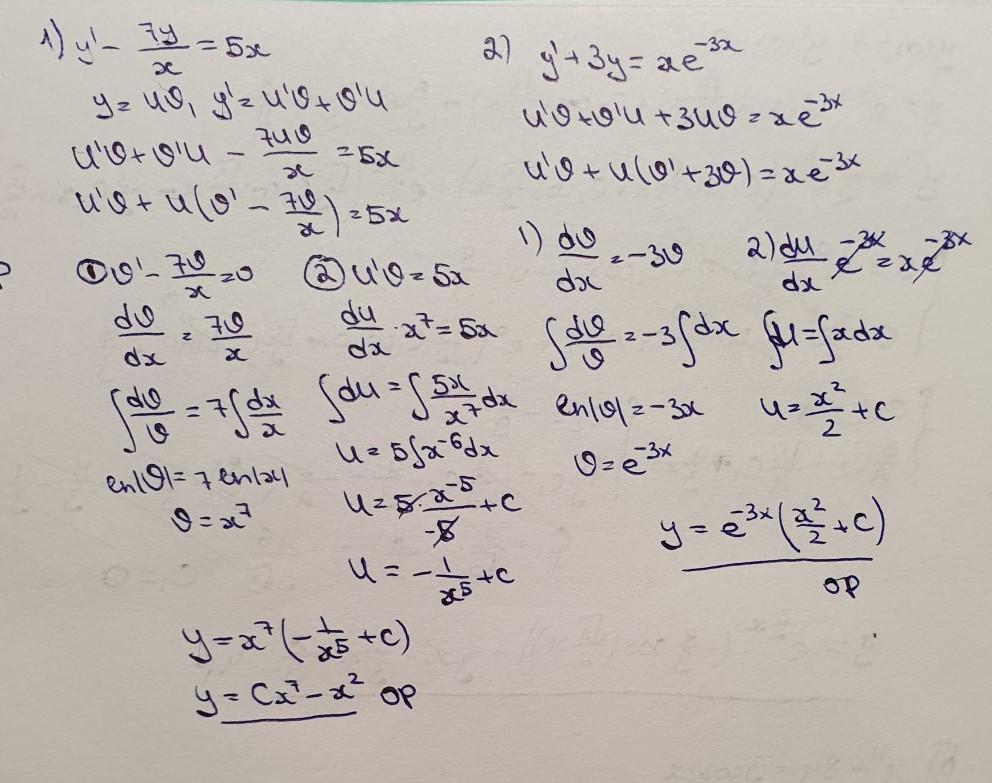 1) y' - 7y/x = 5x
y = uϑ, y' = u'ϑ + ϑ'u
u'ϑ + ϑ'u - 7uϑ/x = 5x
u'ϑ + u(ϑ' - 7ϑ/x) = 5x
① ϑ' - 7ϑ/x = 0
dϑ/dx = 7ϑ/x
∫dϑ/ϑ = 7∫dx/x
ln|ϑ| = 7 ln|x|
ϑ = x⁷
② u'ϑ = 5x
du/dx · x⁷ = 5x
∫du = ∫5x/x⁷ dx
u = 5∫x⁻⁶dx
u = 5 · x⁻⁵/-5 + C
u = -1/x⁵ + C
y = x⁷(-1/x⁵ + C)
y = Cx⁷ - x² OP
2) y' + 3y = xe⁻³ˣ
u'ϑ + ϑ'u + 3uϑ = xe⁻³ˣ
u'ϑ + u(ϑ' + 3ϑ) = xe⁻³ˣ
1) dϑ/dx = -3ϑ
∫dϑ/ϑ = -3∫dx
ln|ϑ| = -3x
ϑ = e⁻³ˣ
2) du/dx e⁻³ˣ = xe⁻³ˣ
∫du = ∫xdx
u = x²/2 + C
y = e⁻³ˣ(x²/2 + C)
OP